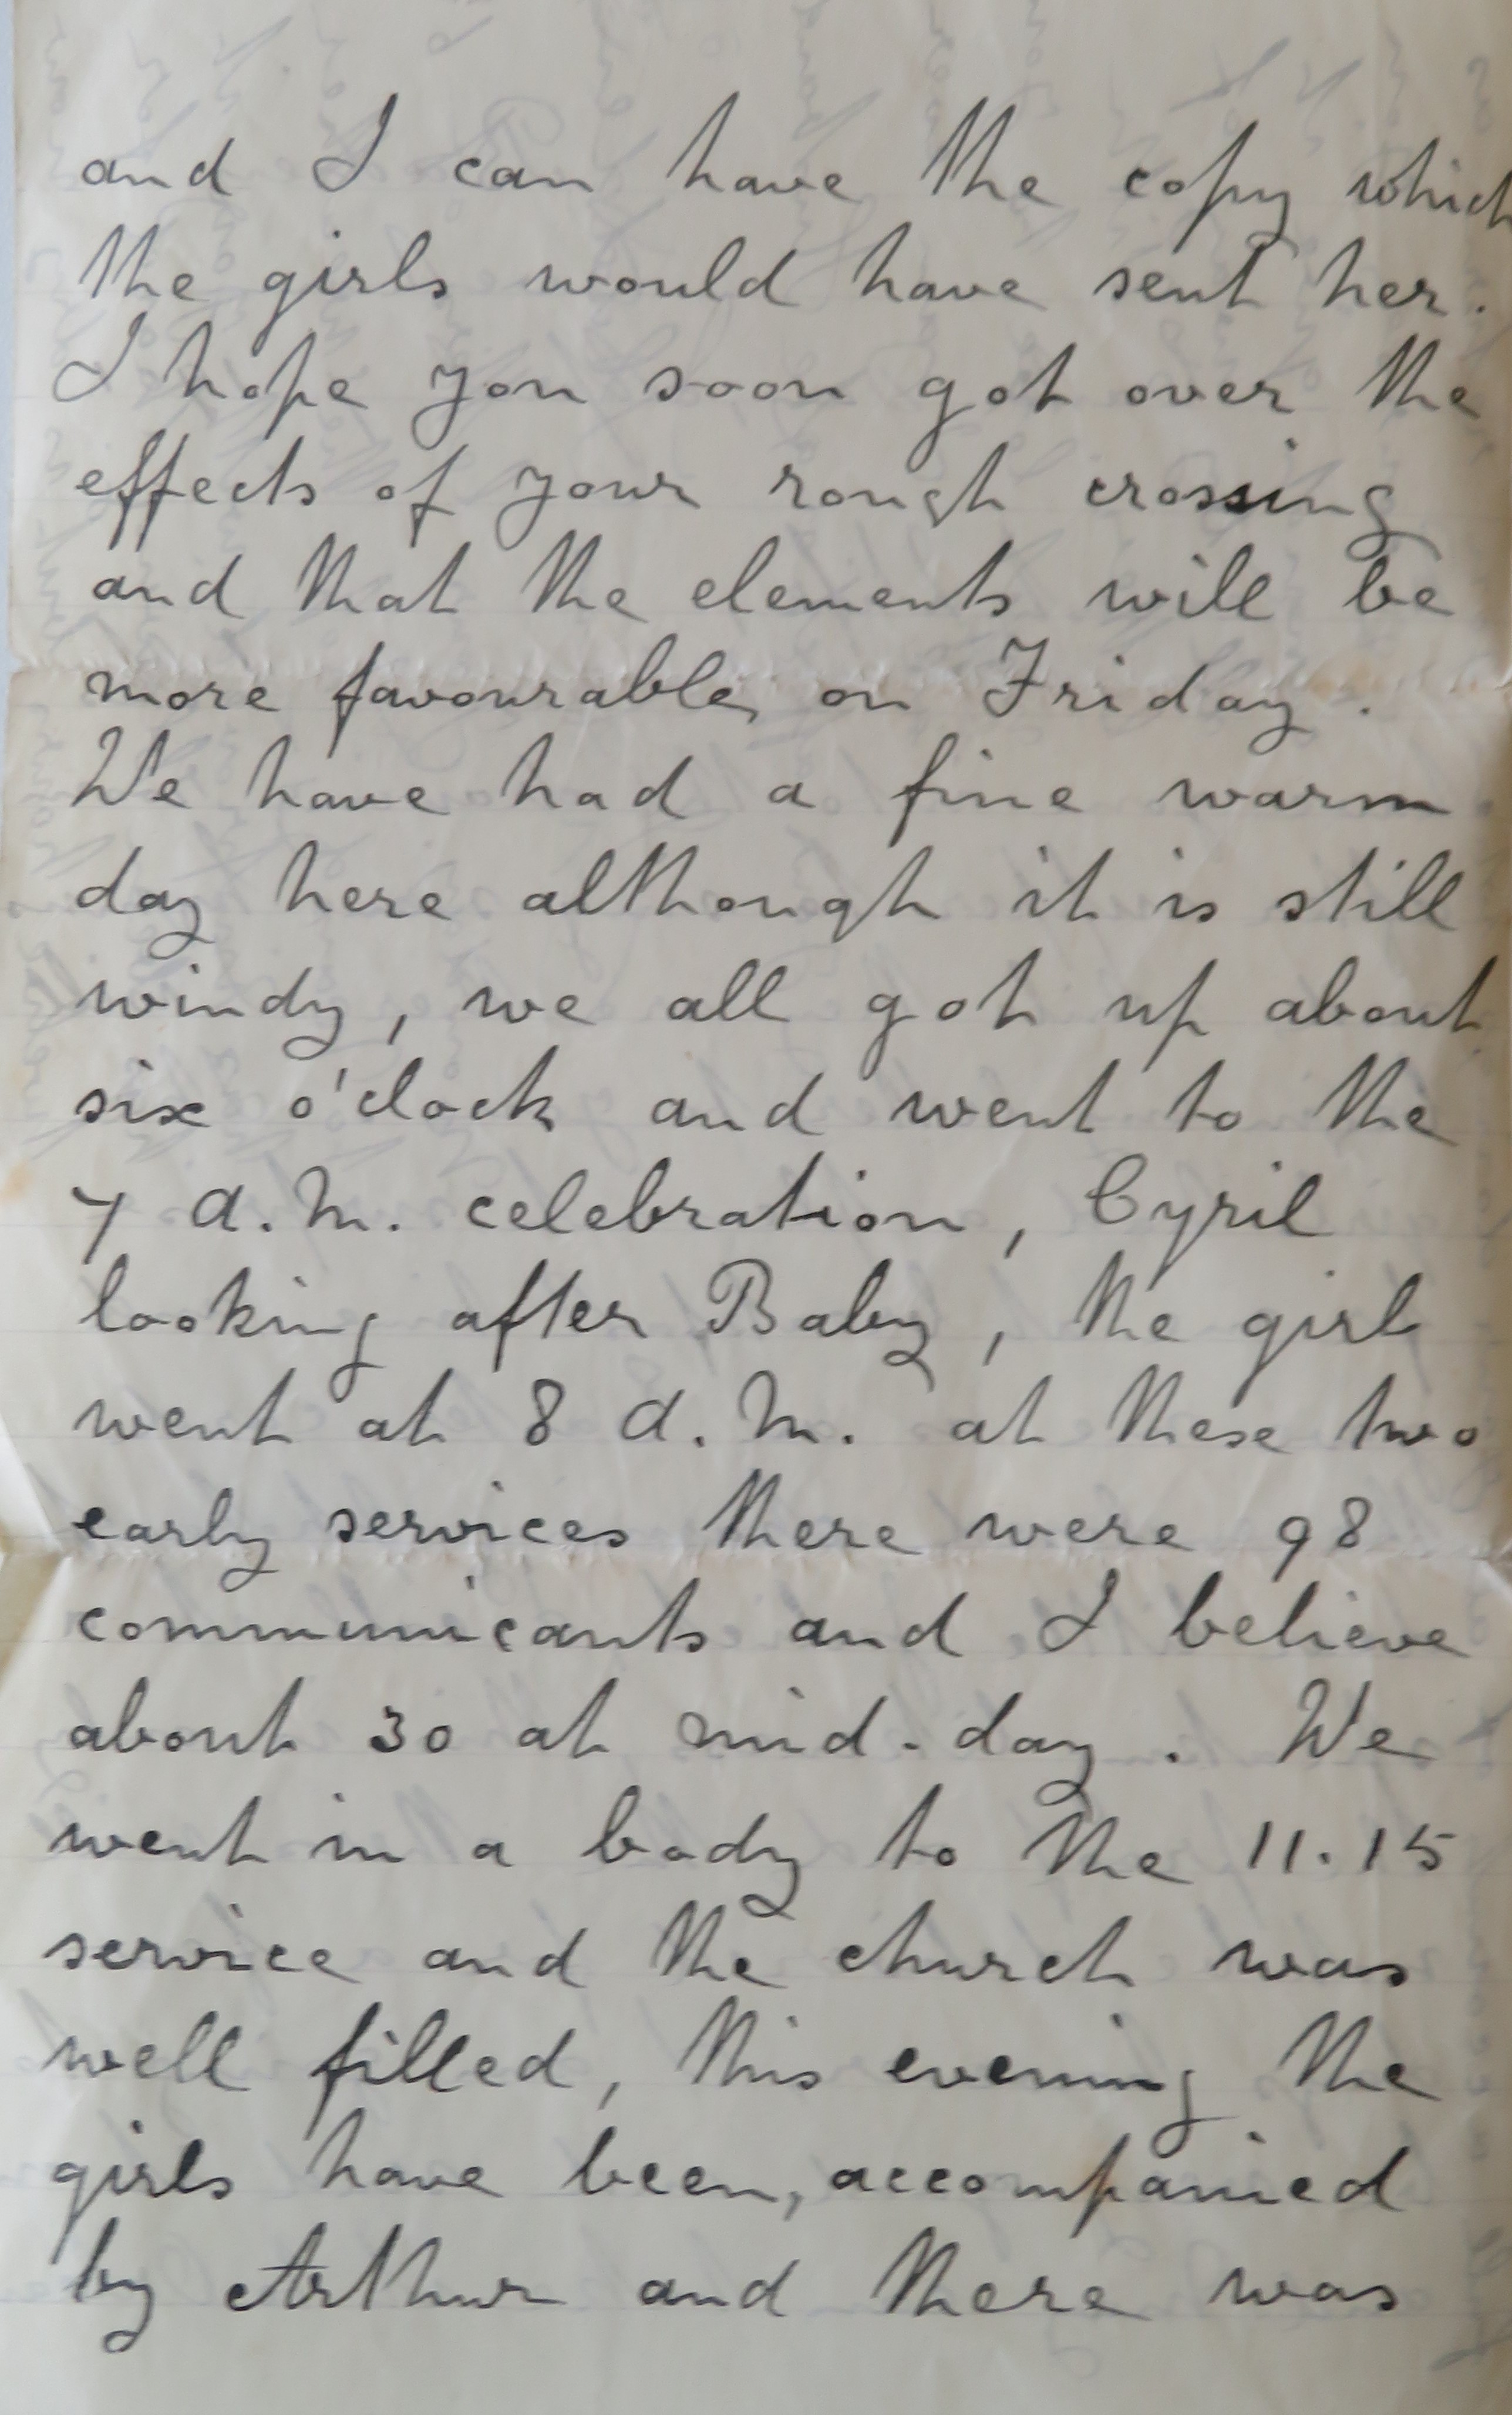 and I can have the copy which
the girls would have sent her.
I hope you soon got over the
effects of your rough crossing
and that the elements will be
more favourable on Friday.
We have had a fine warm
day here although it is still
windy, we all got up about
six o'clock and went to the
7 a.m. celebration, Cyril
looking after Baby, the girl
went at 8 a.m. at these two
early services there were 98
communicants and I believe
about 30 at mid-day. We
went in a body to the 11.15
service and the church was
well filled, this evening the
girls have been, accompanied
by Arthur and there was